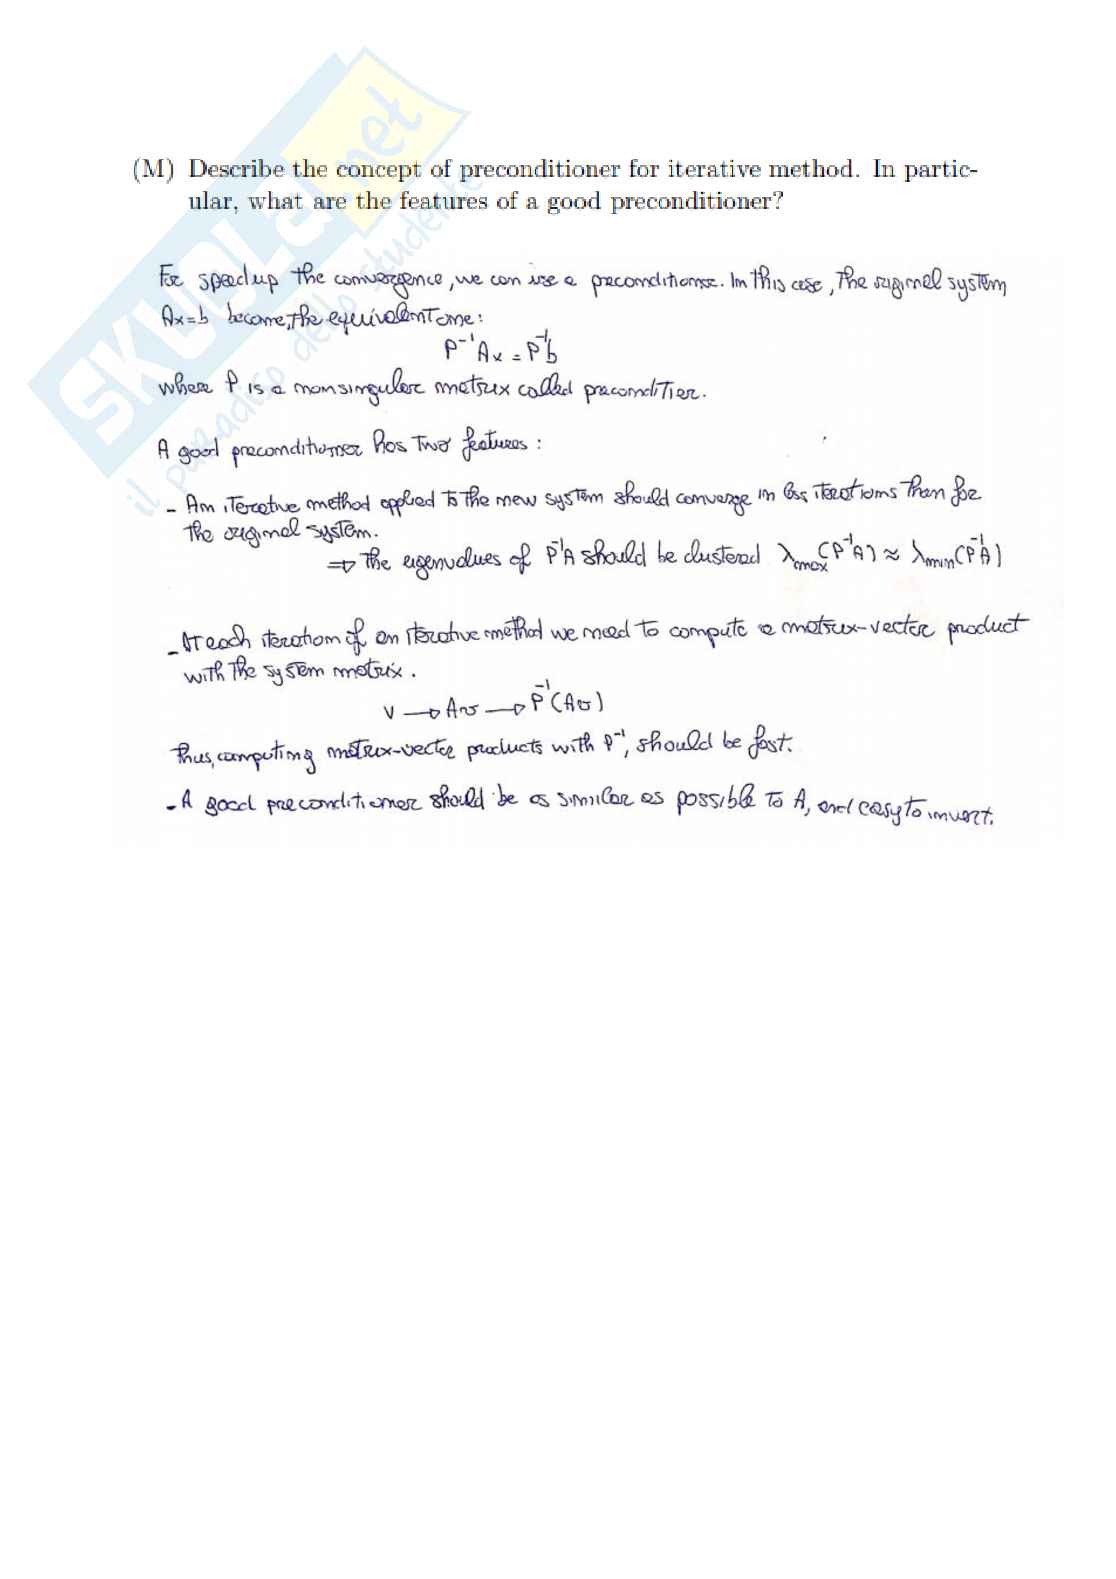 SKUOLA.net
il paradiso dello studente
(M) Describe the concept of preconditioner for iterative method. In partic-
ular, what are the features of a good preconditioner?
For speedup the convergence, we can use a preconditioner. In this case, the original system
Ax=b become, the equivalent one:
P⁻¹Ax = P⁻¹b
where P is a nonsingular matrix called preconditier.
A good preconditioner has two features:
- An iterative method applied to the new system should converge in less iterations than for
the original system.
⇒ The eigenvalues of P⁻¹A should be clustered λmax(P⁻¹A) ≈ λmin(P⁻¹A)
- At each iteration of an iterative method we need to compute a matrix-vector product
with the system matrix.
v → Av → P⁻¹(Av)
Thus, computing matrix-vector products with P⁻¹, should be fast.
- A good preconditioner should be as similar as possible to A, and easy to invert.